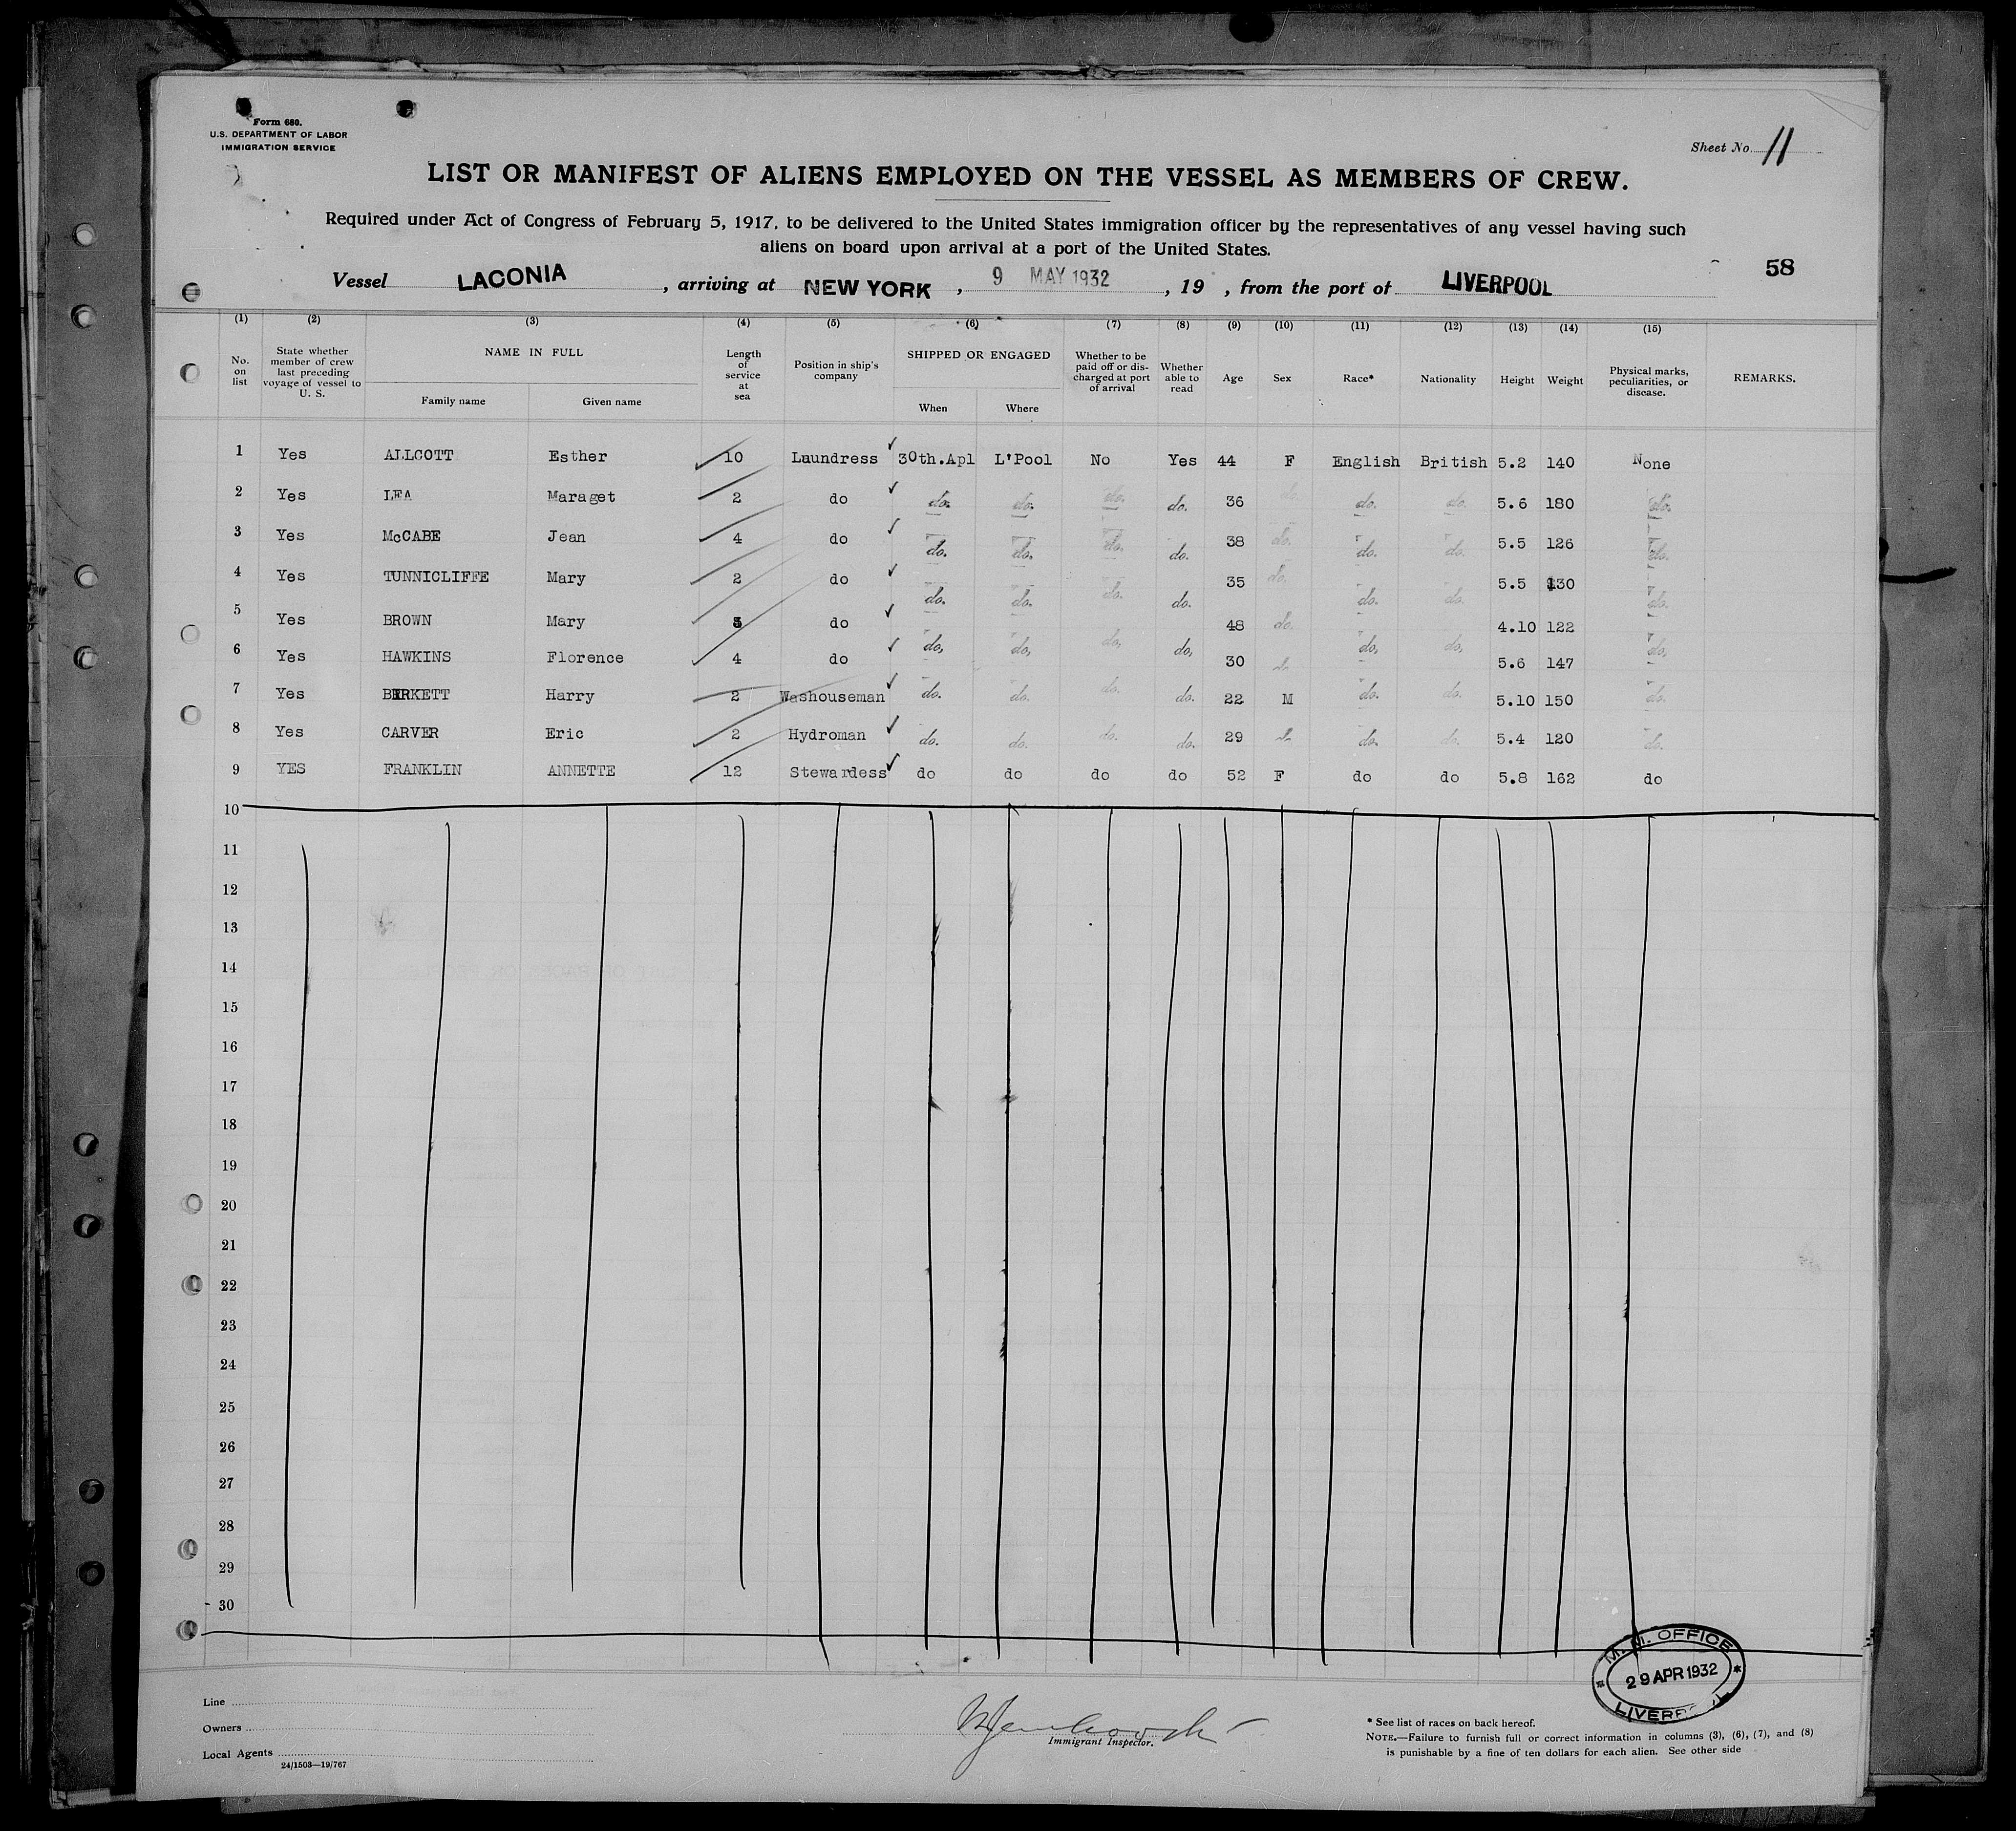 Form 680.
U.S. DEPARTMENT OF LABOR
IMMIGRATION SERVICE
Sheet No. 11
LIST OR MANIFEST OF ALIENS EMPLOYED ON THE VESSEL AS MEMBERS OF CREW.
Required under Act of Congress of February 5, 1917, to be delivered to the United States immigration officer by the representatives of any vessel having such
aliens on board upon arrival at a port of the United States.
Vessel LACONIA, arriving at NEW YORK, 9 MAY 1932, 19 , from the port of LIVERPOOL 58
(1) (2) (3) (4) (5) (6) (7) (8) (9) (10) (11) (12) (13) (14) (15)
No. on list State whether member of crew last preceding voyage of vessel to U. S. NAME IN FULL Family name Given name Length of service at sea Position in ship's company SHIPPED OR ENGAGED When Where Whether to be paid off or discharged at port of arrival Whether able to read Age Sex Race* Nationality Height Weight Physical marks, peculiarities, or disease. REMARKS.
1 Yes ALLCOTT Esther 10 Laundress 30th.Apl L'Pool No Yes 44 F English British 5.2 140 None
2 Yes LEA Maraget 2 do do. do. do. do. 36 do. do. do. 5.6 180 do.
3 Yes McCABE Jean 4 do do. do. do. do. 38 do. do. do. 5.5 126 do.
4 Yes TUNNICLIFFE Mary 2 do do. do. do. do. 35 do. do. do. 5.5 130 do.
5 Yes BROWN Mary do do. do. do. do. 48 do. do. do. 4.10 122 do.
6 Yes HAWKINS Florence 4 do do. do. do. do. 30 do. do. 5.6 147 do.
7 Yes BIRKETT Harry 2 Washouseman do. do. do. do. 22 M do. do. 5.10 150 do.
8 Yes CARVER Eric 2 Hydroman do. do. do. do. 29 do. do. 5.4 120 do.
9 YES FRANKLIN ANNETTE 12 Stewardess do do do do 52 F do do 5.8 162 do
10
11
12
13
14
15
16
17
18
19
20
21
22
23
24
25
26
27
28
29
30
M. M. OFFICE
29 APR 1932
LIVERPOOL
Line
Owners
Local Agents
24/1503—19/767
Immigrant Inspector.
* See list of races on back hereof.
NOTE.—Failure to furnish full or correct information in columns (3), (6), (7), and (8)
is punishable by a fine of ten dollars for each alien. See other side